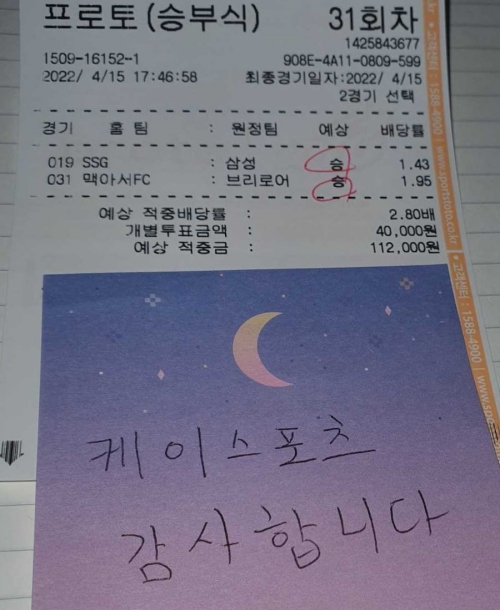 프로토(승부식) 31회차
1425843677
1509-16152-1 908E-4A11-0809-599
2022/ 4/15 17:46:58 최종경기일자:2022/ 4/15
2경기 선택
경기 홈 팀 : 원정팀 예상 배당률
019 SSG : 삼성 승 1.43
031 맥아서FC : 브리로어 승 1.95
예상 적중배당률 : 2.80배
개별투표금액 : 40,000원
예상 적중금 : 112,000원
케이스포츠
감사합니다
고객센터 : 1588-4900 | www.sportstoto.co.kr
고객센터 : 1588-4900 | www.sp